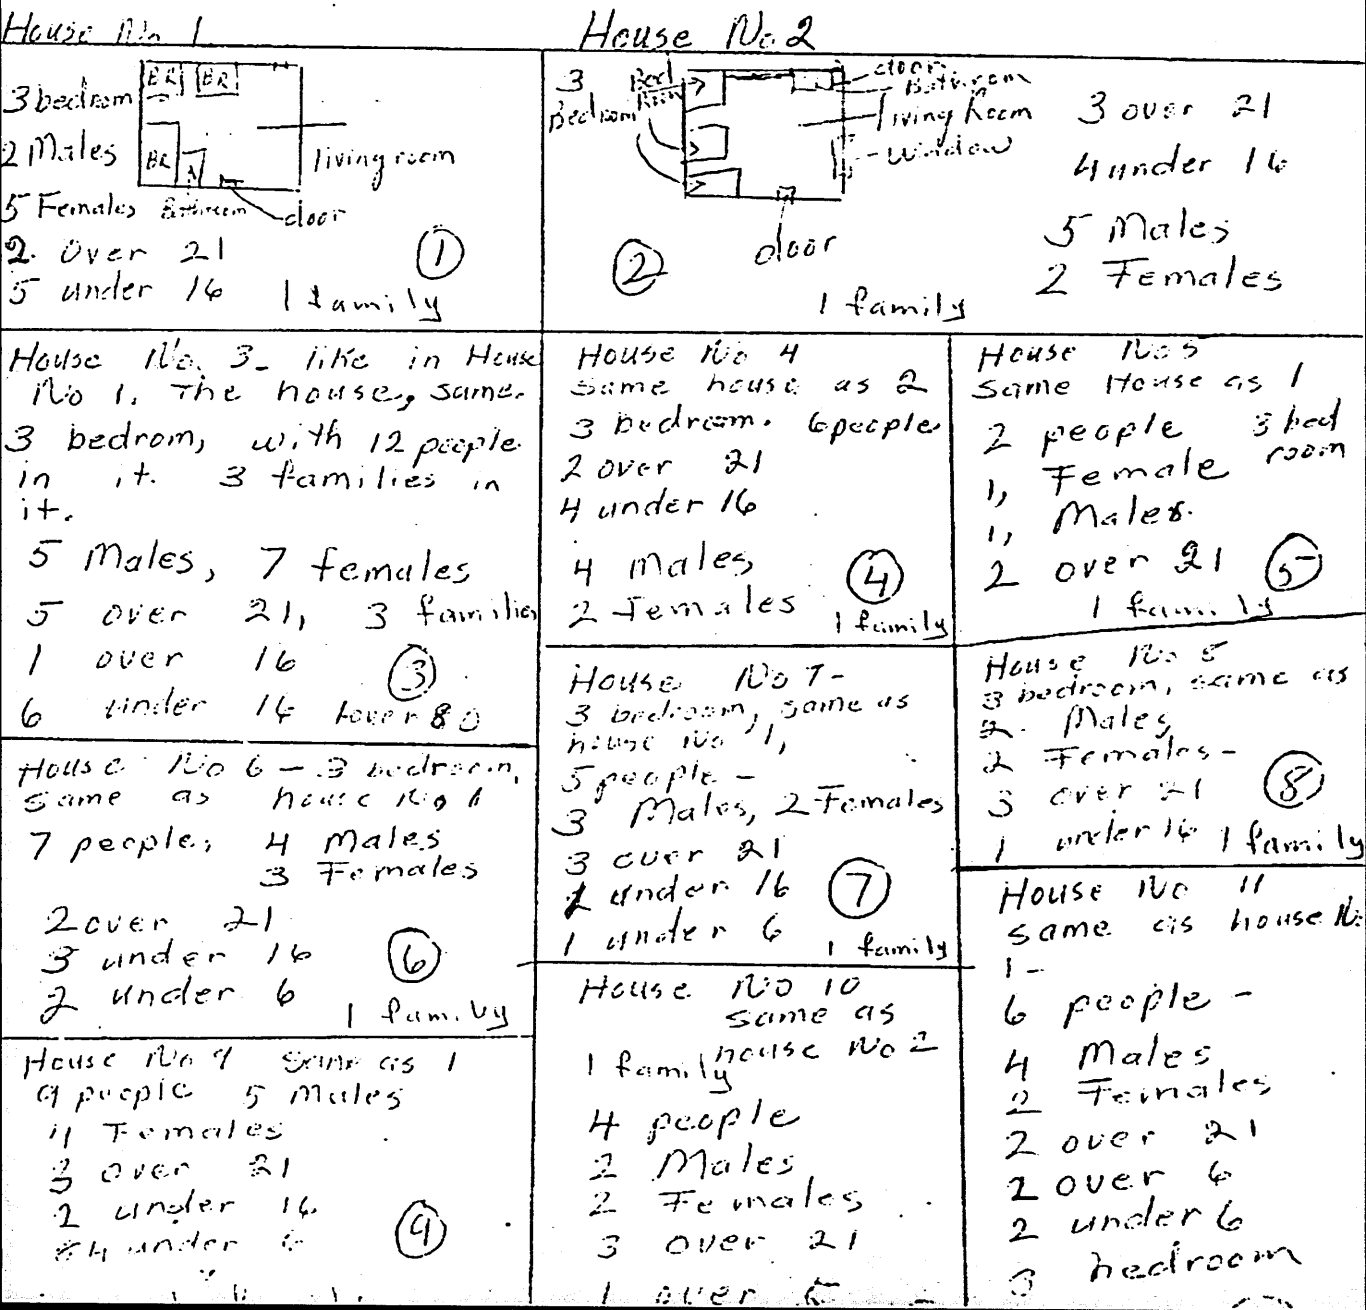 House No 1
3 bedrom
BR
BR
2 Males
BR
living room
5 Females
Bathroom
door
2 over 21
5 under 16
1 family
1
House No. 2
3
Bedroom
Bed
Room
door
Bathroom
living Room
Window
door
3 over 21
4 under 16
5 Males
2 Females
2
1 family
House No. 3- like in House
No 1. The house, same.
3 bedrom, with 12 people
in it. 3 families in
it.
5 Males, 7 females
5 over 21, 3 families
1 over 16
3
6 under 16 1 over 80
House No 4
same house as 2
3 bedroom. 6 people
2 over 21
4 under 16
4 Males
4
2 Females
1 family
House No 5
same House as 1
2 people 3 bed
room
1, Female
1, Males.
2 over 21
5
1 family
House No 6 - 3 bedroom,
same as house No
7 people, 4 Males
3 Females
2 over 21
3 under 16
6
2 under 6
1 family
House No 7-
3 bedroom, same as
house No 1,
5 people -
3 Males, 2 Females
3 over 21
under 16
7
1 under 6
1 family
House No 8
3 bedroom, same as
2. Males
2 Females-
3 over 21
8
1 under 16 1 family
House No 9 same as 1
9 people 5 Males
4 Females
3 over 21
2 under 16
4 under 6
9
House No 10
same as
house No 2
1 family
4 people
2 Males
2 Females
3 over 21
1 over
House No 11
same as house No.
1-
6 people -
4 Males
2 Females
2 over 21
2 over 6
2 under 6
3 bedroom